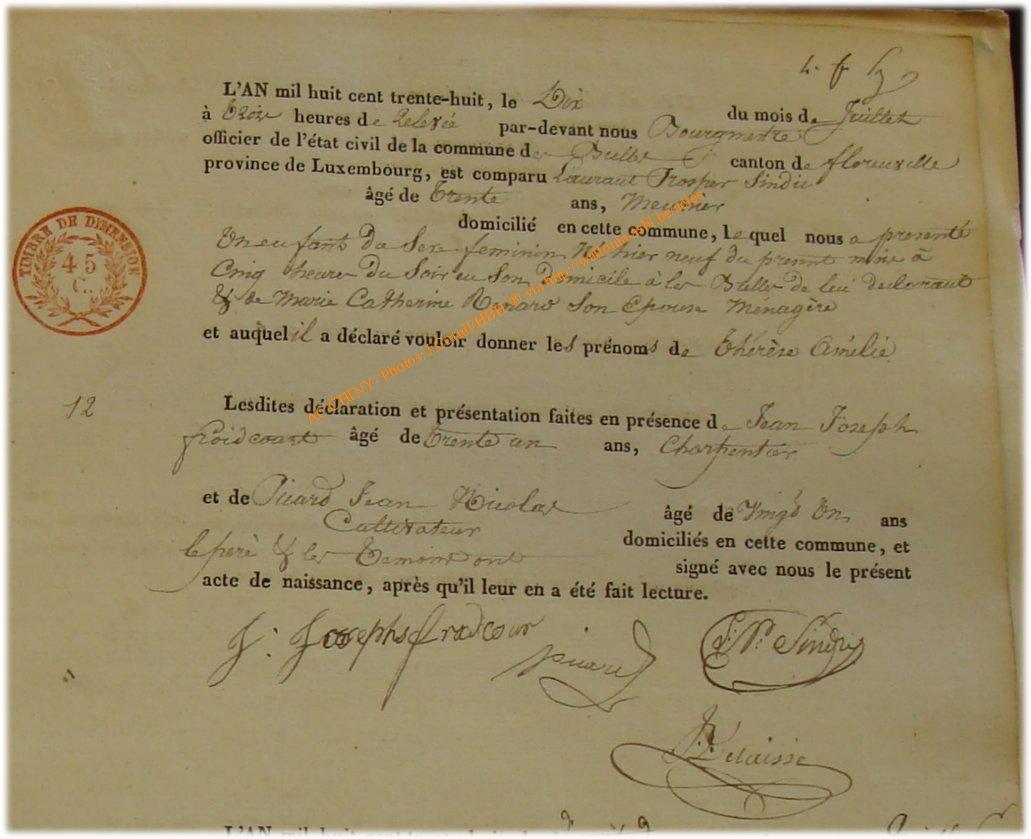 L'AN mil huit cent trente-huit, le Dix du mois de Juillet
à trois heures de relevée par-devant nous Bourgmestre
officier de l'état civil de la commune de Bulles canton de florenville
province de Luxembourg, est comparu Laurant Prosper Sindic
âgé de trente ans, Meunier
domicilié en cette commune, lequel nous a presenté
Un enfant du Sexe feminin Né hier neuf du present mois à
Cinq heures du Soir en Son domicile à les Bulles de lui declarant
& de Marie Catherine Renard Son Epouse Ménagère
et auquel il a déclaré vouloir donner les prénoms de thérèse Amélie
12
Lesdites déclaration et présentation faites en présence de Jean Joseph
froidcourt âgé de trente un ans, Charpentier
et de Picard Jean Nicolas âgé de Vingt Un ans
Cultivateur domiciliés en cette commune, et
le pere & les Temoins ont signé avec nous le présent
acte de naissance, après qu'il leur en a été fait lecture.
J. Josephs
picard
TIMBRE DE DIMENSION
45
C.